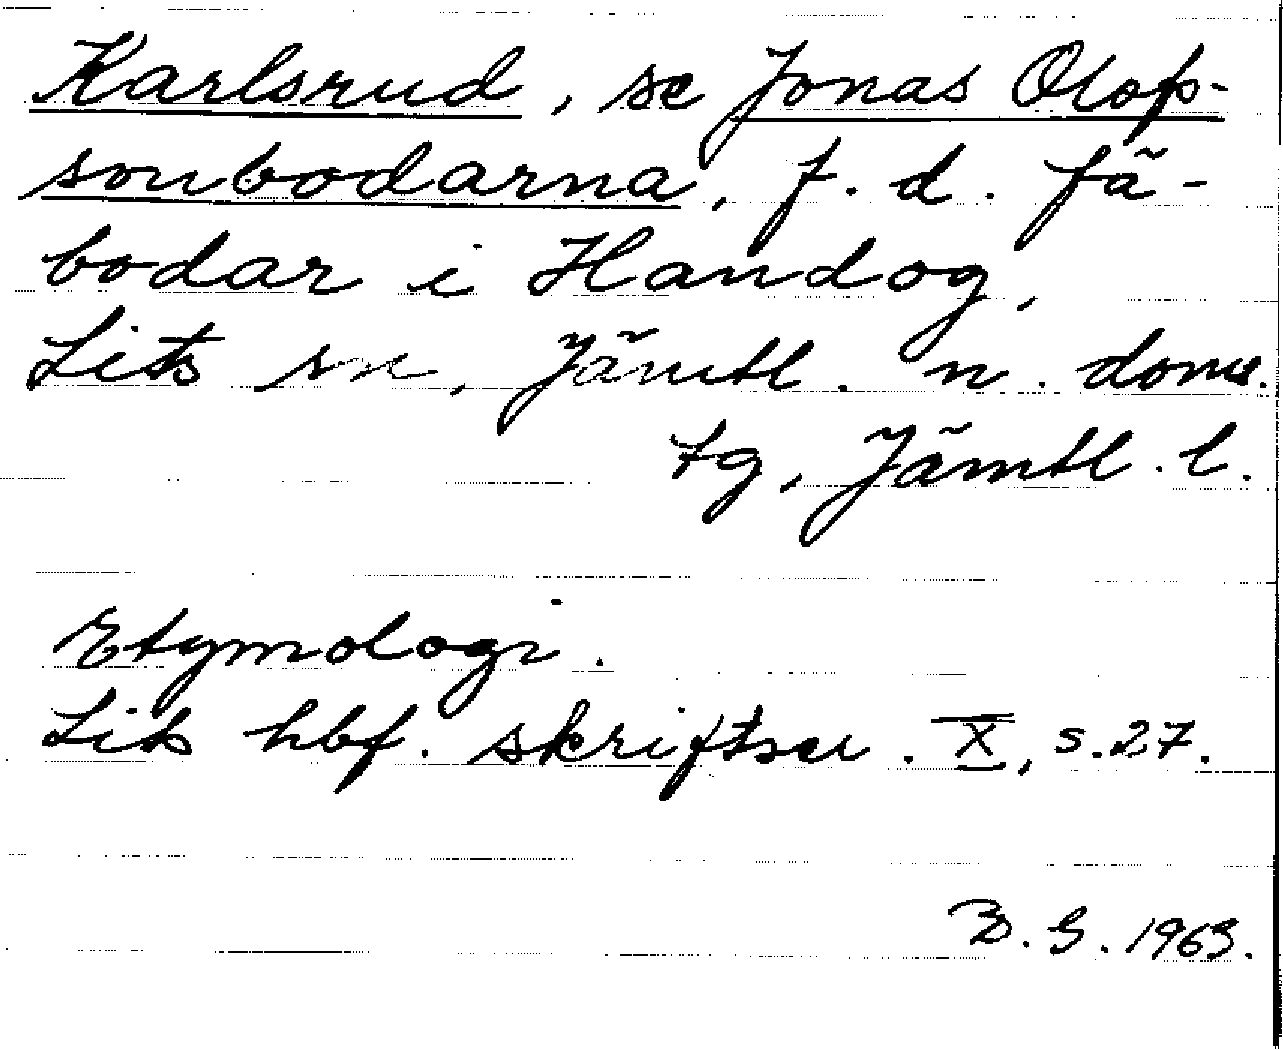 Karlsrud, se Jonas Olofs-
sonbodarna, f. d. fä-
bodar i Handog,
Lits sn, Jämtl. n. doms.
tg, Jämtl. l.
Etymologi.
Lits hbf. skriftser. X, s. 27.
B. G. 1963.